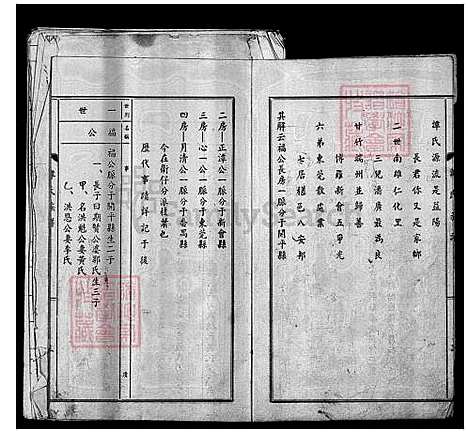 譚氏源流是益陽
長君你又是家鄉
二世南雄仁化里
三兒潘廣最為良
甘竹端州並歸善
博羅新會五華光
六弟東莞散從業
七居禮邑八安邦
其解云福公長房一脈分于開平縣
二房—正漳公一脈分于新會縣
三房—心一公一脈分于東莞縣
四房—月清公一脈分于番禺縣
今在衛仔分派枝葉也
歷代事蹟詳記于後
世別
名稱
事
一世
福公
福公脈分于開平縣生二子
一、長子曰期賢公慶鄭氏生三子
甲、名洪魁公妻黃氏
乙、洪恩公妻李氏